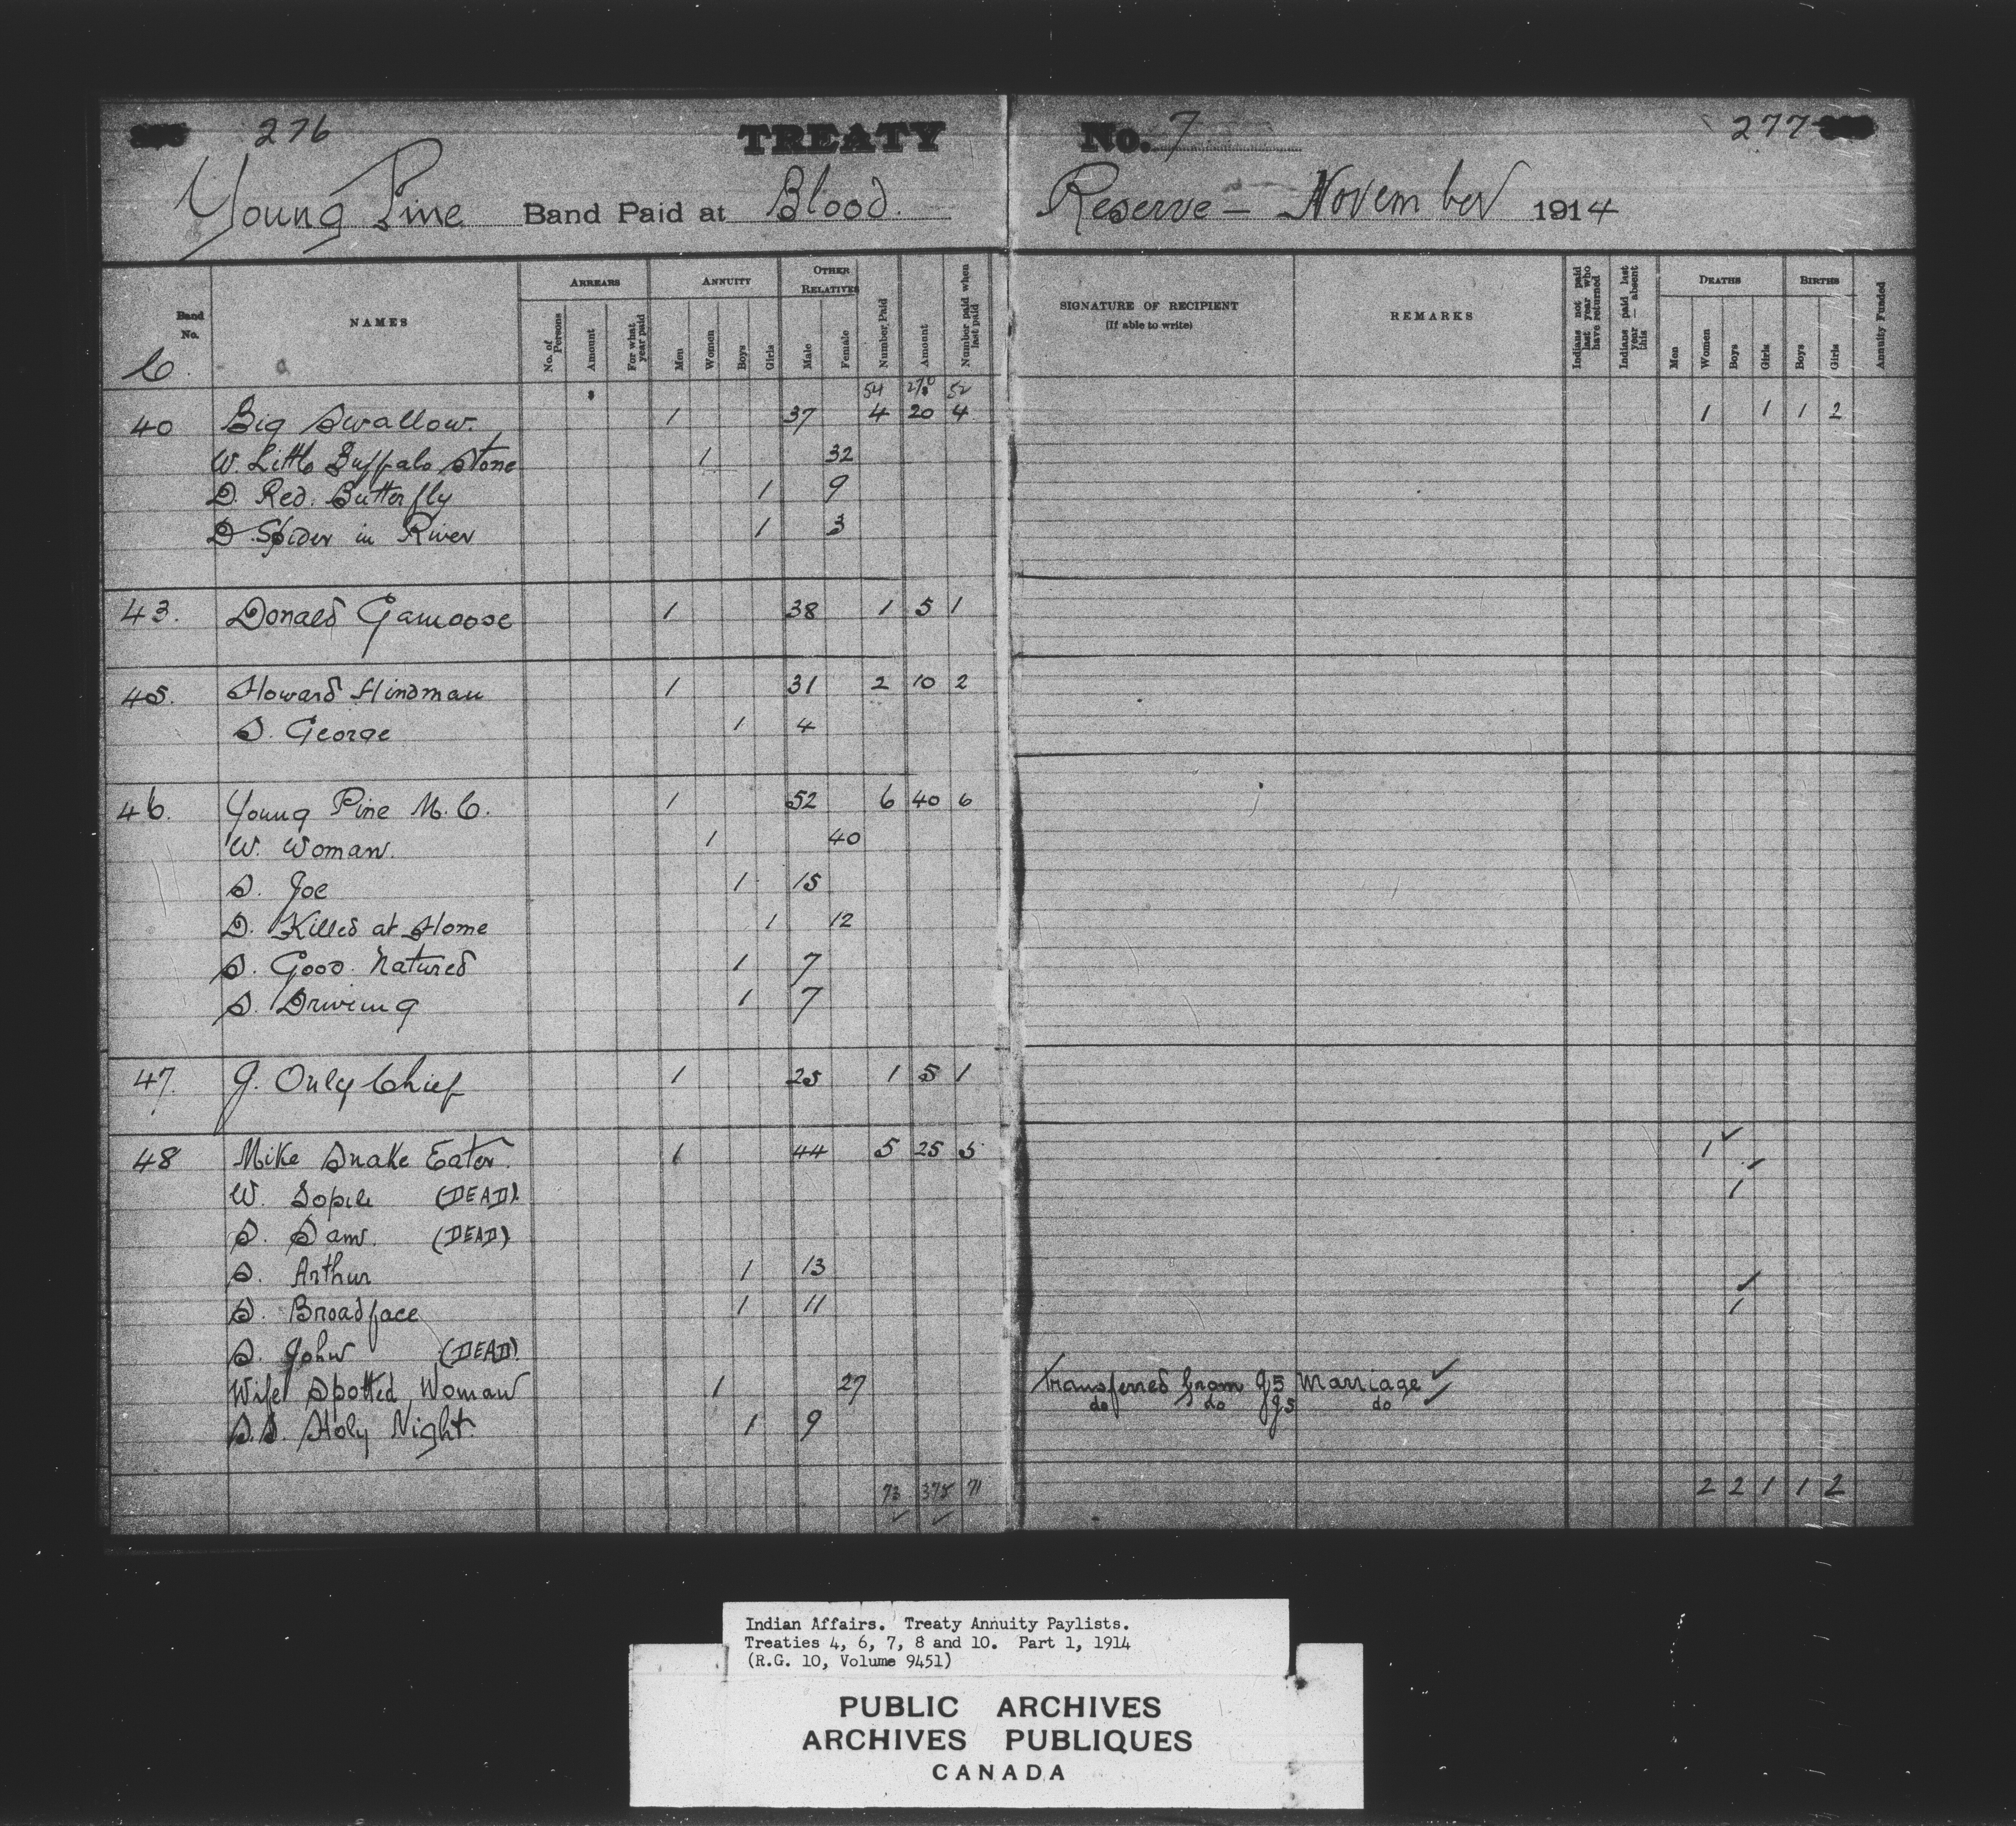 276 TREATY No. 7 277
Young Pine Band Paid at Blood. Reserve - November 1914
Band No. NAMES ARREARS ANNUITY OTHER RELATIVES Number Paid Amount Number paid when last paid SIGNATURE OF RECIPIENT (If able to write) REMARKS Indians not paid last year who have returned Indians paid last year — absent this DEATHS BIRTHS Annuity Funded
No. of Persons Amount For what year paid Men Women Boys Girls Male Female Men Women Boys Girls Boys Girls
C.
$ 54 270 52
40 Big Swallow. 1 37 4 20 4 1 1 1 2
W. Little Buffalo Stone 1 32
D. Red. Butterfly 1 9
D. Spider in River 1 3
43. Donald Gamoose 1 38 1 5 1
45. Howard Hindman 1 31 2 10 2
S. George 1 4
46. Young Pine M. C. 1 52 6 40 6
W. Woman. 1 40
S. Joe 1 15
D. Killed at Home 1 12
S. Good. Natured 1 7
S. Driving 1 7
47. J. Only Chief 1 25 1 5 1
48 Mike Snake Eater. 1 44 5 25 5 1
W. (DEAD). 1
S. Sam. (DEAD)
S. Arthur 1 13
S. Broadface 1 11 1
S. John (DEAD).
Wife Spotted Woman 1 27 transferred from G5 Marriage
S.S. Holy Night. 1 9 do do G5 do
73 375 71 2 2 1 1 2
Indian Affairs. Treaty Annuity Paylists.
Treaties 4, 6, 7, 8 and 10. Part 1, 1914
(R.G. 10, Volume 9451)
PUBLIC ARCHIVES
ARCHIVES PUBLIQUES
CANADA